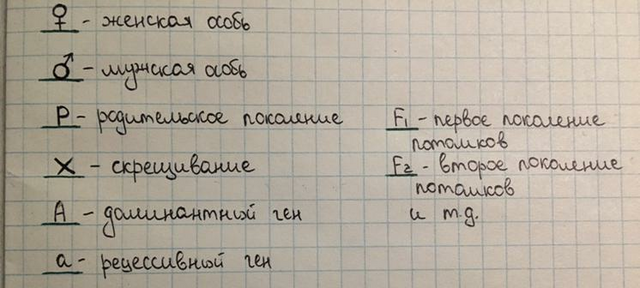 ♀ - женская особь
♂ - мужская особь
P - родительское поколение
X - скрещивание
A - доминантный ген
a - рецессивный ген
F₁ - первое поколение
потомков
F₂ - второе поколение
потомков
и т.д.